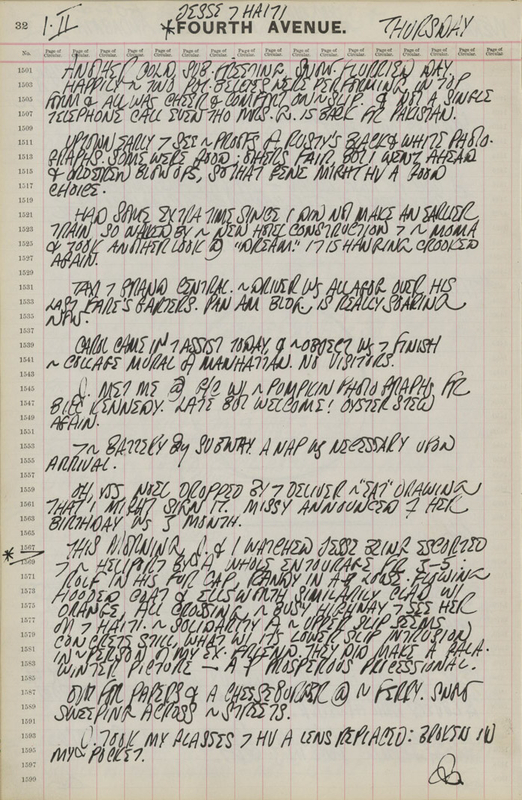 32 1·11 JESSE 7 HAITI
*FOURTH AVENUE. THURSDAY
No. Page of Circular. Page of Circular. Page of Circular. Page of Circular. Page of Circular. Page of Circular. Page of Circular. Page of Circular. Page of Circular. Page of Circular. Page of Circular. Page of Circular. Page of Circular. Page of Circular. Page of Circular.
1501 ANOTHER COLD, SUB-FREEZING SNOW-FLURRIED DAY.
1503 HAPPILY ~ TWO POT-BELLIES WERE PERFORMING IN TOP
1505 FORM & ALL WAS CHEER & COMFORT ON ~ SLIP. & NOT A SINGLE
1507 TELEPHONE CALL EVEN THO MRS. IS BACK FR PAKISTAN.
1509
1511 UPTOWN EARLY 7 SEE ~ PROOFS OF RUSTY'S BLACK & WHITE PHOTO-
1513 GRAPHS. SOME WERE GOOD; OTHERS FAIR. BUT I WENT AHEAD
1515 & ORDERED BLOW UPS, SO THAT GENE MIGHT HV A GOOD
1517 CHOICE.
1519
1521 HAD SOME EXTRA TIME SINCE I DID NOT MAKE AN EARLIER
1523 TRAIN SO WALKED BY ~ NEW HOTEL CONSTRUCTION 7 ~ MOMA
1525 & TOOK ANOTHER LOOK @ "DREAM." IT IS HANGING CROOKED
1527 AGAIN.
1529
1531 TAXI 7 GRAND CENTRAL. ~ DRIVER WS ALL AGOG OVER HIS
1533 LAST FARE'S GARTERS. PAN AM BLDG. IS REALLY SOARING
1535 NOW.
1537
1539 CAROL CAME IN 7 ASSIST TODAY, & ~ OBJECT WS 7 FINISH
1541 ~ COLLAGE MURAL OF MANHATTAN. NO VISITORS.
1543
1545 MET ME @ G/C W/ ~ PUMPKIN PHOTOGRAPHS FR
1547 BILL KENNEDY. LATE BUT WELCOME! OYSTER STEW
1549 AGAIN.
1551
1553 7 ~ BATTERY BY SUBWAY. A NAP WS NECESSARY UPON
1555 ARRIVAL.
1557
1559 OH, YES NOEL DROPPED BY 7 DELIVER ~ "EAT" DRAWING
1561 THAT I MIGHT SIGN IT. MISSY ANNOUNCED HER
1563 BIRTHDAY WS MONTH.
1565
* 1567 THIS MORNING & I WATCHED JESSE BEING ESCORTED
1569 7 ~ HELIPORT BY A WHOLE ENTOURAGE FR 3-5:
1571 ROLF IN HIS FUR CAP, RANDY IN A FLOWING
1573 HOODED COAT & ELLSWORTH SIMILARLY CLAD W/
1575 ORANGE, ALL CROSSING ~ BUSY HIGHWAY 7 SEE HER
1577 OFF 7 HAITI. ~ SOLIDARITY OF ~ UPPER SLIP SEEMS
1579 CONCRETE STILL WHAT W/ ITS LOWER SLIP INTRUSION
1581 IN ~ PERSON OF MY EX-FRIEND. THEY DID MAKE A GALA
1583 WINTER PICTURE — A PROSPEROUS PROCESSIONAL.
1585
1587 OUT FOR PAPERS & A CHEESEBURGER @ ~ FERRY. SNOW
1589 SWEEPING ACROSS ~ STREETS.
1591
1593 TOOK MY GLASSES 7 HV A LENS REPLACED: BROKEN IN
1595 MY POCKET.
1597
1599